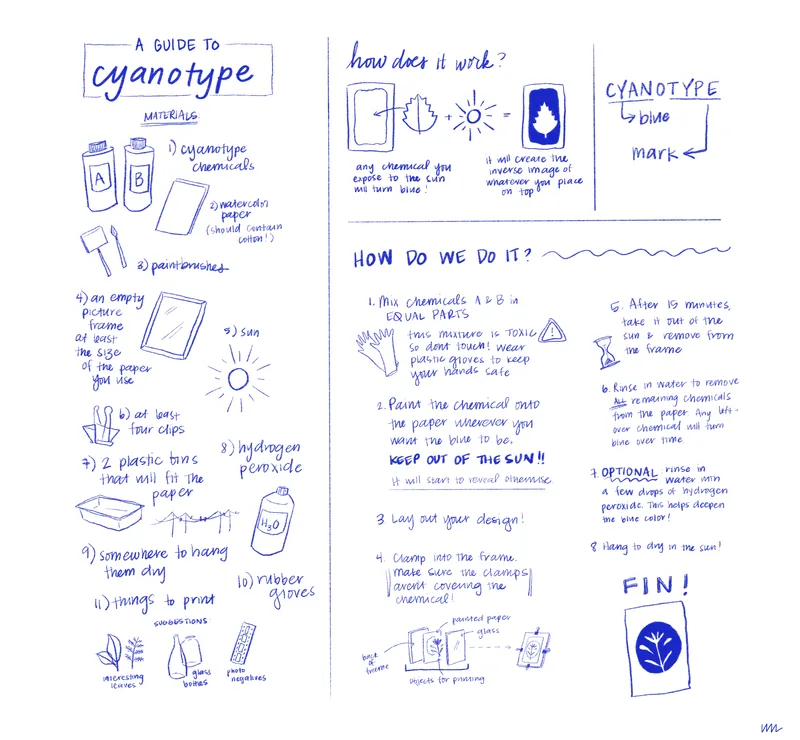 A GUIDE TO
cyanotype
MATERIALS
A
B
1) cyanotype
chemicals
2) watercolor
paper
(should contain
cotton!)
3) paintbrushes
4) an empty
picture
frame
at least
the size
of the paper
you use
5) sun
6) at least
four clips
7) 2 plastic bins
that will fit the
paper
8) hydrogen
peroxide
H3O
9) somewhere to hang
them dry
10) rubber
gloves
11) things to print
SUGGESTIONS:
interesting
leaves
glass
bottles
photo
negatives
how does it work?
+
=
any chemical you
expose to the sun
will turn blue!
it will create the
inverse image of
whatever you place
on top
CYANOTYPE
blue
mark
HOW DO WE DO IT?
1. Mix chemicals A & B in
EQUAL PARTS
this mixture is TOXIC
so dont touch! Wear
plastic gloves to keep
your hands safe
!
2. Paint the chemical onto
the paper wherever you
want the blue to be.
KEEP OUT OF THE SUN!!
It will start to reveal otherwise
3. Lay out your design!
4. Clamp into the frame.
make sure the clamps
arent covering the
chemical!
painted paper
glass
back
of
frame
Objects for printing
5. After 15 minutes,
take it out of the
sun & remove from
the frame
6. Rinse in water to remove
ALL remaining chemicals
from the paper. Any left-
over chemical will turn
blue over time.
7. OPTIONAL: rinse in
water with
a few drops of hydrogen
peroxide. This helps deepen
the blue color!
8. Hang to dry in the sun!
FIN!